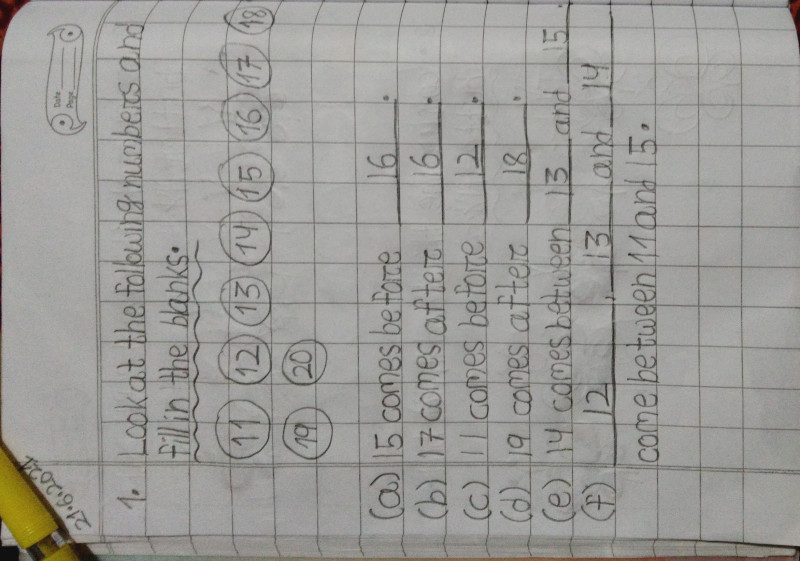 Date
Page
21.6.2021
1. Look at the following numbers and
fill in the blanks.
11 12 13 14 15 16 17 18
19 20
(a) 15 comes before 16.
(b) 17 comes after 16.
(c) 11 comes before 12.
(d) 19 comes after 18.
(e) 14 comes between 13 and 15.
(f) 12, 13 and 14
come between 11 and 15.